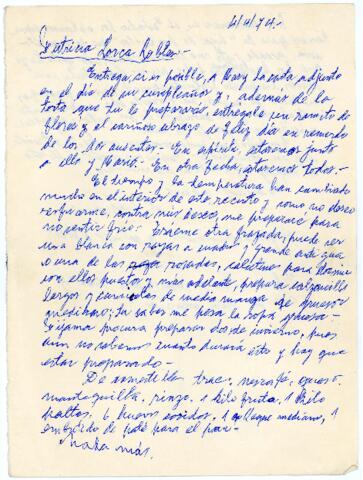 4/4/74.-
Patricia Lorca Robles-
Entrega, si es posible, a Mary la carta adjunta
en el día de su cumpleaños y, además de la
torta que tu le prepararás, entregale un ramito de
flores y el cariñoso abrazo de feliz día en recuerdo
de los dos ausentes- En espíritu estaremos junto
a ella y Mario- En otra fecha, estaremos todos.-
El tiempo y la temperatura han cambiado
mucho en el interior de este recinto y como no deseo
resfriarme, contra mis deseos, me prepararé para
no sentir frío- Traeme otra frazada, puede ser
una blanca con rayas a cuadros y grande
o una de las rosadas, calcetines para dormir
con ellos puestos y más adelante, prepara calzoncillo
largos y camisetas de media manga de grosor
mediano; tu sabes me pesa la ropa gruesa-
Pijama procura preparar dos de invierno, pues
aun no sabemos cuanto durará ésto y hay que
estar preparado-
De comestibles trae, nescafé, queso
mantequilla, 1 kilo fruta, 1 kilo
paltas, 6 huevos cocidos, 1 mediano, 1
de paté para el pan-
Nada más.